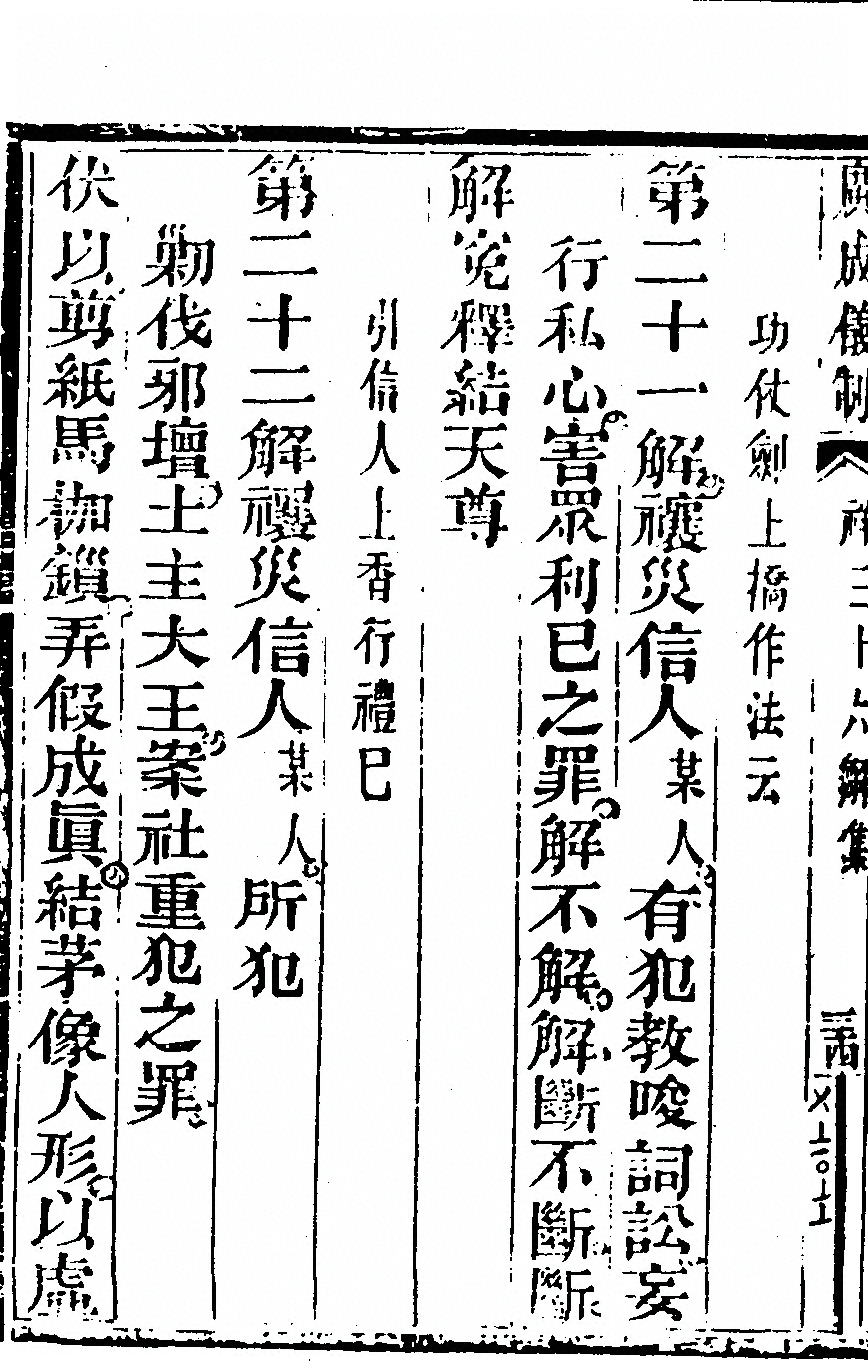 廣成儀制
禳三十六解集
功仗劍上橋作法云
第二十一解禳災信人某人有犯教唆詞訟妄
行私心害眾利已之罪解不解解斷不斷斷
解寃釋結天尊
引信人上香行禮已
第二十二解禳災信人某人所犯
勦伐邪壇土主大王案社重犯之罪
伏以剪紙馬枷鎖弄假成眞結茅像人形以處